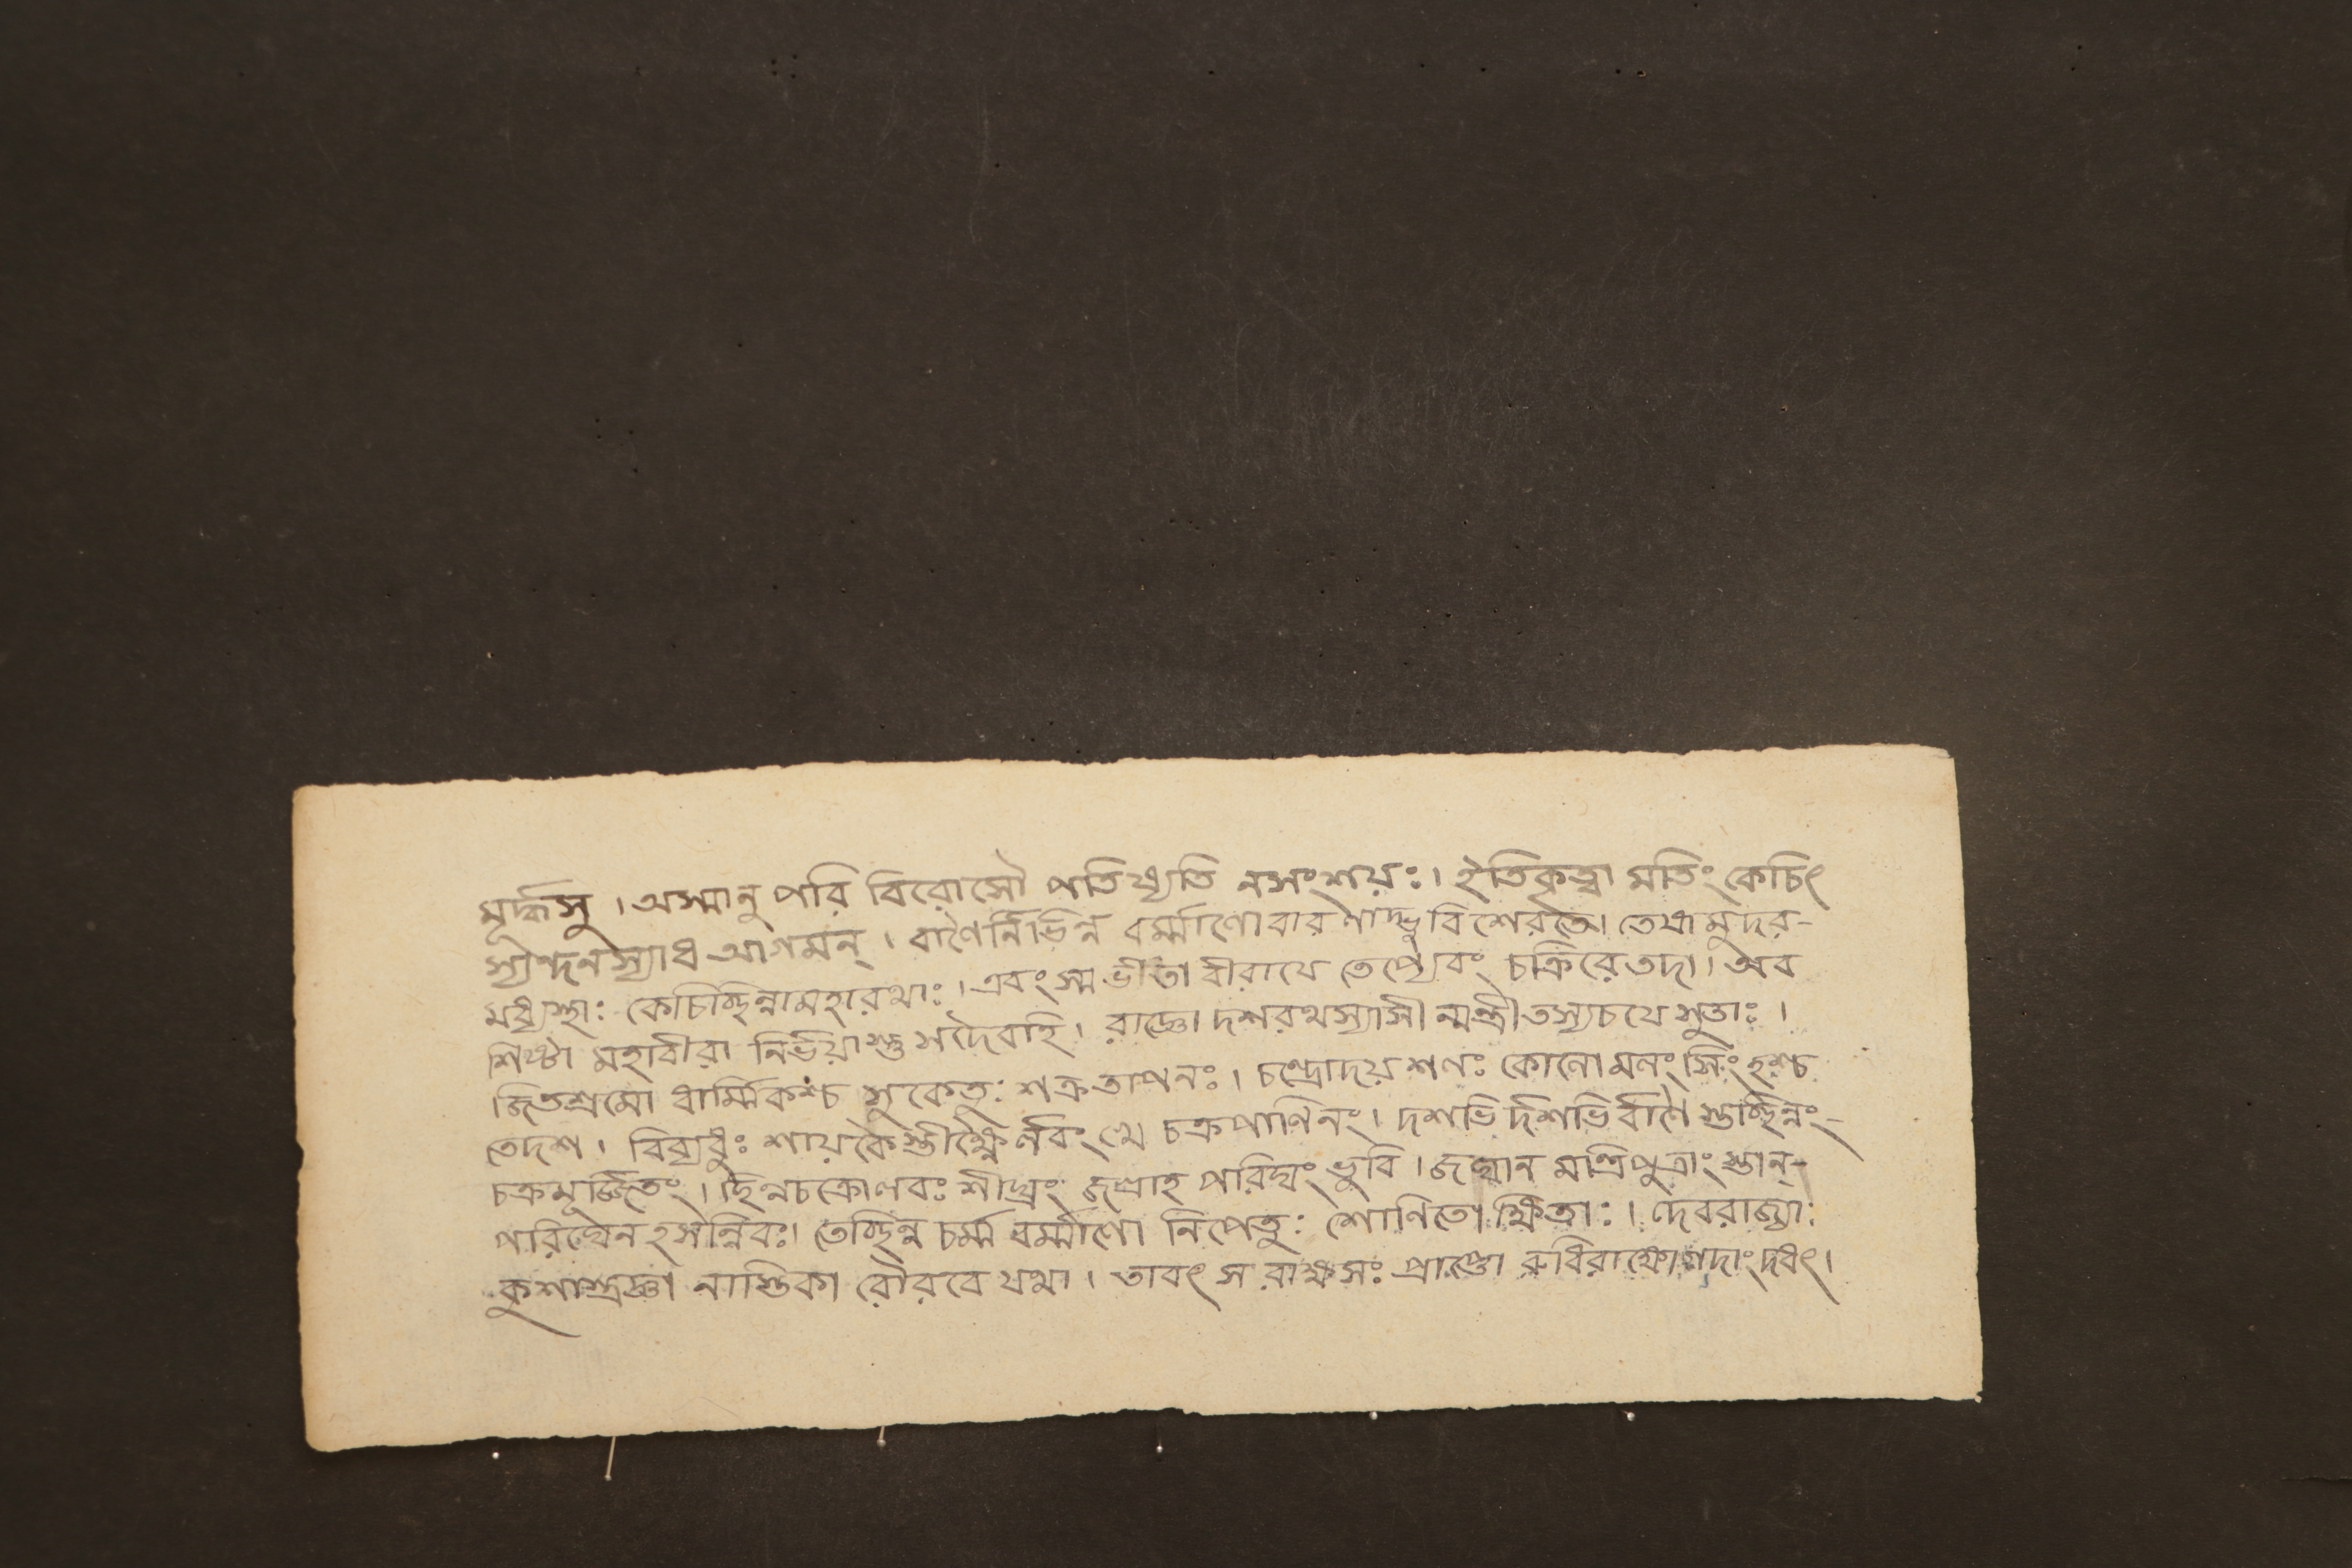 মূর্দ্ধসু । অস্মানু পরি বিরোসৌ পতিষ্যতি নসংশয়ঃ । ইতিকৃত্বা মতিং কেচিৎ
স্যন্দনস্যাধ আগমন্ । বাণৈর্নির্ভিন্ন বর্ম্মাণো বারণাদ্ভুবি শেরতে । তেষামুদর-
মধ্যস্থাঃ কেচিচ্ছিন্নামহারথাঃ । এবংস্ম ভীতা বীরাযে তেপ্যেবং চক্রিরেতদা । অব
শিষ্টা মহাবীরা নির্ভয়াস্তু সদৈবহি । রাজ্ঞো দশরথস্যাসী ন্মন্ত্রীতস্যচযে সুতাঃ ।
জিতশ্রমো ধার্ম্মিকশ্চ সুকেতুঃ শত্রুতাপনঃ । চন্দ্রোদয় শণঃ কোনো মনং সিংহশ্চ
তেদশ । বিব্যধুঃ শায়কৈস্তীক্ষ্ণৈর্ণবং খে চক্রপাণিনং । দশভি র্দশভি র্বাণৈ স্তচ্ছিন্নং-
চক্রমূর্জ্জিতং । ছিন্নচক্রোণবঃ শীঘ্রং জগ্রাহ পরিঘং ভুবি । জঘান মন্ত্রিপুত্রাং স্তান্-
পরিঘেন হসন্নিবঃ । তেচ্ছিন্ন চর্ম্ম বর্ম্মাণো নিপেতুঃ শোণিতোক্ষিতাঃ । দেবরাজ্যাঃ
কুশাস্ত্রজ্ঞা নাস্তিকা রৌরবে যথা । তাবৎ স রাক্ষসঃ প্রাপ্তো রুধিরাক্ষোগদাং দধৎ ।